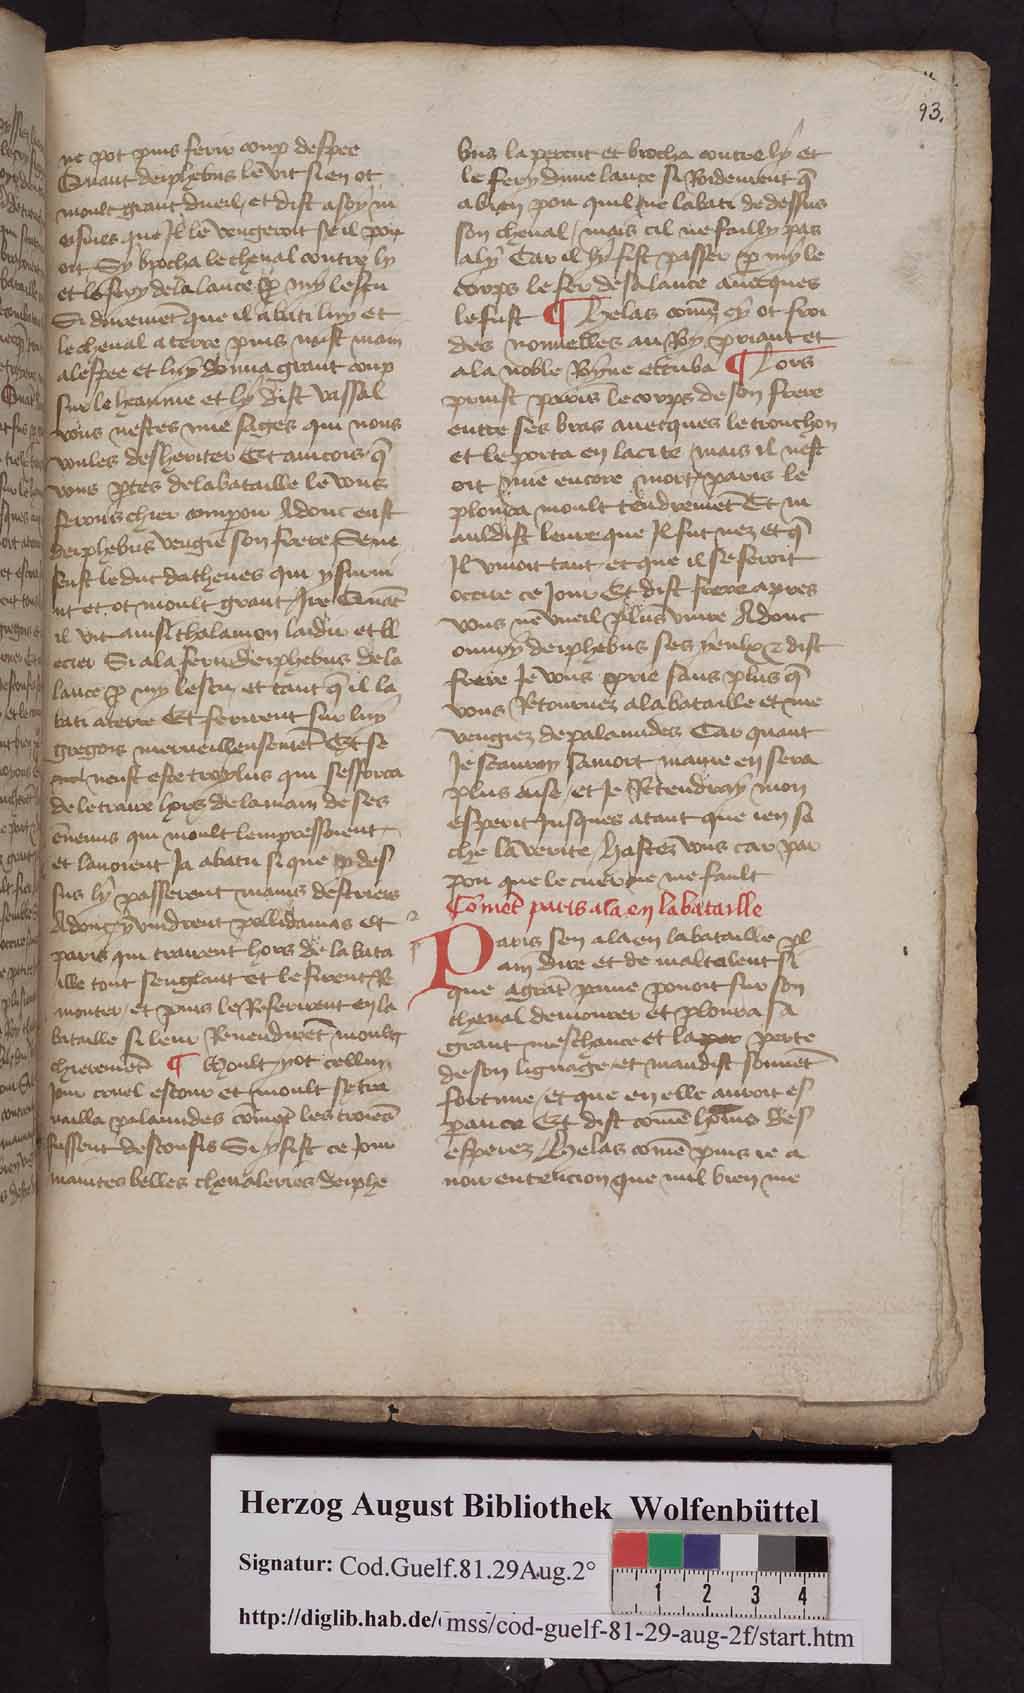 93.
ne pot puis ferir coup despee
Quant deiphebus le vit si en ot
moult grant dueil / et dist a soy m
esmes que Il le vengeroit se il pou
oit Sy brocha le cheual contre ly
et le fery de la lance p my lescu
Si durement que il abati luy et
le cheual a terre puis mist main
a lespee et luy donna grant coup
sur le heaume et ly dist vassal
vous nestes mie sages qui nous
voules desheriter Et aincois q
vous ptes de la bataille le vous
ferons chier comperer Adonc eust
deiphebus vengie son frere Se ne
feust le duc dathenes qui y surui
nt et ot moult grant Ire Quat
il vit ainsi thalamon laidir et bl
ecier Si ala ferir deiphebus de la
lance p my lescu et tant q il la
bati a terre Et ferirent sur luy
gregois merueilleusemet Et se
neust este troylus qui sefforca
de le traire hors de la main de ses
enemis qui moult lempressoient
et lauoient Ja abatu si que p des
sus ly passerent mains destriers
Adonc y vindrent pollidamas et
paris qui trairent hors de la bata
ille tout senglant et le firent Re
monter / et puis le Referirent en la
bataille si leur Reuendiret moult
chierement ¶ Moult y ot cellui
Jour cruel estour et moult se tra
uailla palamides comet les troies
fussent desconfis Si y fist ce Jour
maintes belles cheualeries deiphe
bus la percut et brocha contre ly et
le fery dune lance si Roidement q
a bien pou quil ne labati de dessus
son cheual / mais cil ne failly pas
a ly Car il ly fist passer p my le
corps le fer de sa lance auecques
le fust ¶ Helas come cy ot froi
des nouuelles au Roy priant et
a la noble Royne eccuba ¶ Lors
prinst paris le corps de son frere
entre ses bras auecques le tronchon
et le porta en la cite mais il nest
oit mie encore mort / paris le
ploura moult tendrement Et m
auldist leure que Il fut nez et q
Il viuoit tant et que il se feroit
occire ce Jour Et dist frere apres
vous ne vueil plus viure Adonc
ouury deiphebus ses yeulx & dist
frere Je vous prie sans plus q
vous Retournez a la bataille et me
vengiez de palamides Car quant
Je scauray sa mort mame en sera
plus aise / et Je Retendray mon
esperit Jusques atant que ien sa
che la verite / hastez vous car par
pou que le cuer ne me fault
Comet paris ala en la bataille
Paris sen ala en la bataille pl
ain dire et de maltalent si
que a grat paine pouoit sur son
cheual demourer et ploura sa
grant meschance et la per perte
de son lignage / et maudist souuet
fortune / et que en elle auroit es
pance Et dist come homs des
esperez / helas come puis ie a
uoir entencion que nul bien me
Herzog August Bibliothek Wolfenbüttel
Signatur: Cod.Guelf.81.29Aug.2°
1 2 3 4
http://diglib.hab.de/mss/cod-guelf-81-29-aug-2f/start.htm